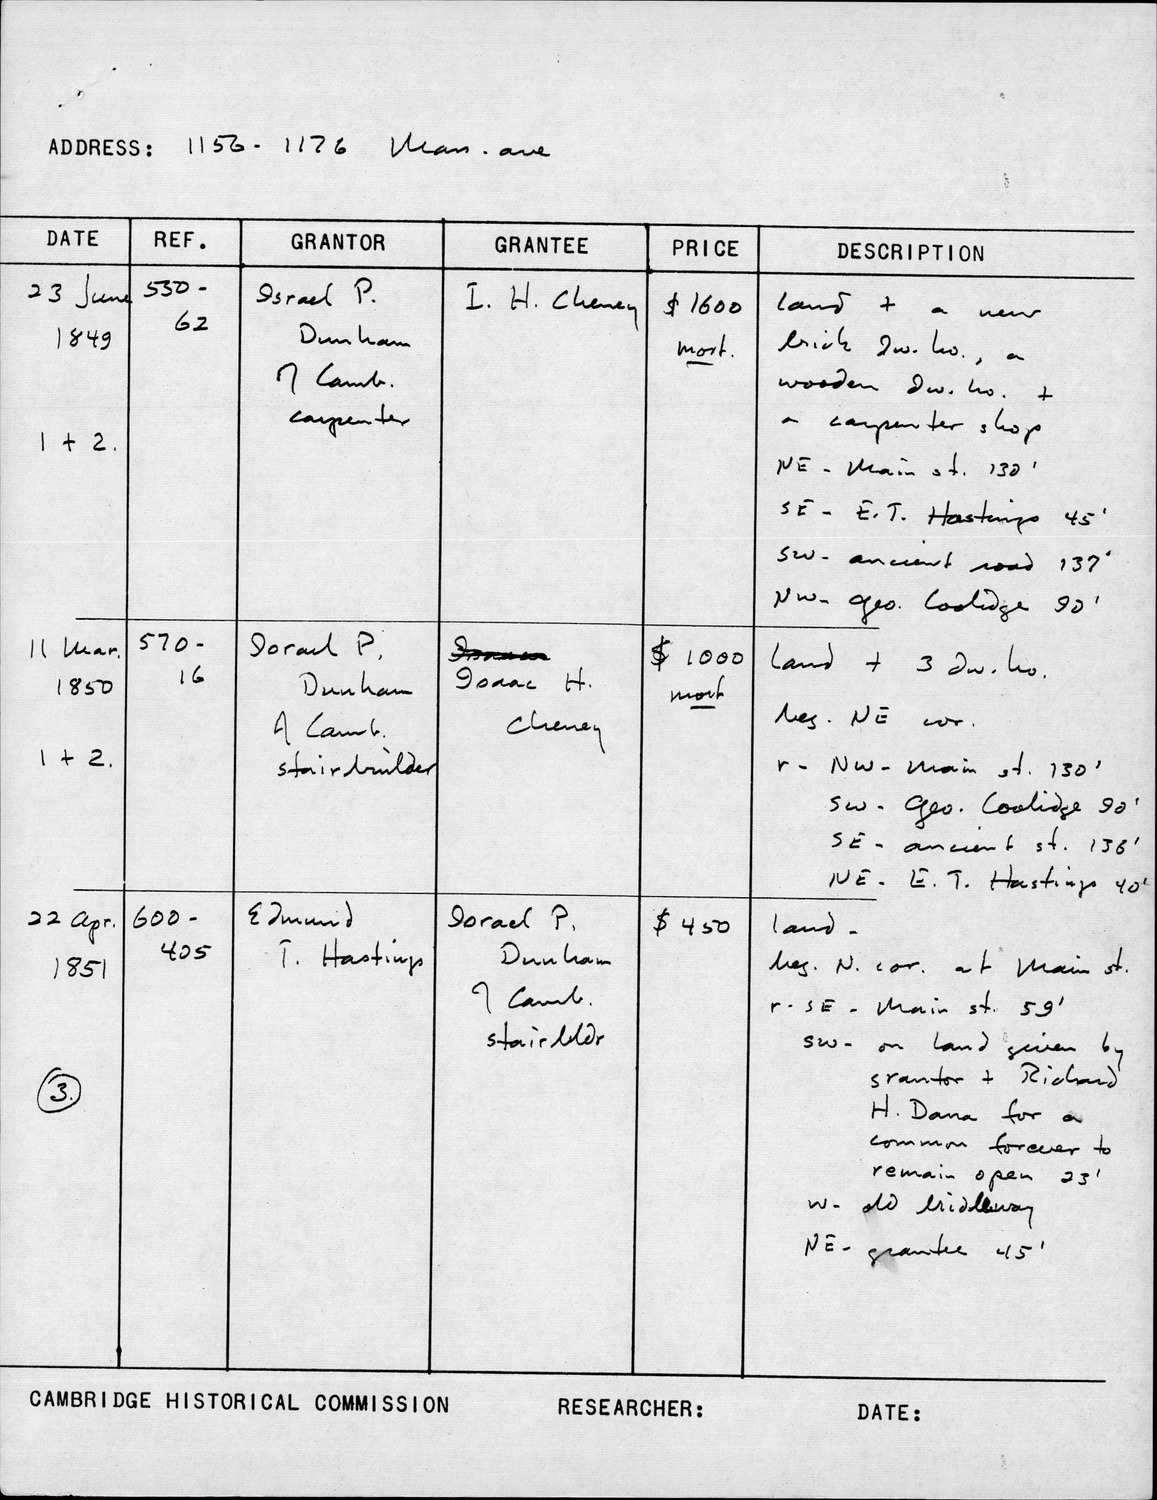 ADDRESS: 1156 - 1176 Mass. ave
DATE REF. GRANTOR GRANTEE PRICE DESCRIPTION
23 June 1849
1 + 2.
530 - 62
Israel P.
Dunham
of Camb.
carpenter
I. H. Cheney
$ 1600
mort.
land + a new
brick dw. ho., a
wooden dw. ho. +
a carpenter shop
NE - Main st. 130'
SE - E.T. Hastings 45'
SW - ancient road 137'
NW - Geo. Coolidge 90'
11 Mar. 1850
1 + 2.
570 - 16
Israel P.
Dunham
of Camb.
stairbuilder
Isaac H.
Cheney
$ 1000
mort
land + 3 dw. ho.
beg. NE cor.
r - NW - Main st. 130'
SW - Geo. Coolidge 90'
SE - ancient st. 136'
NE - E. T. Hastings 40'
22 Apr. 1851
3.
600 - 405
Edmund
T. Hastings
Israel P.
Dunham
of Camb.
stairbldr
$ 450
land -
beg. N. cor. at Main st.
r - SE - Main st. 59'
SW - on land given by
grantor + Richard
H. Dana for a
common forever to
remain open 23'
W - old bridleway
NE - grantee 45'
CAMBRIDGE HISTORICAL COMMISSION RESEARCHER: DATE: